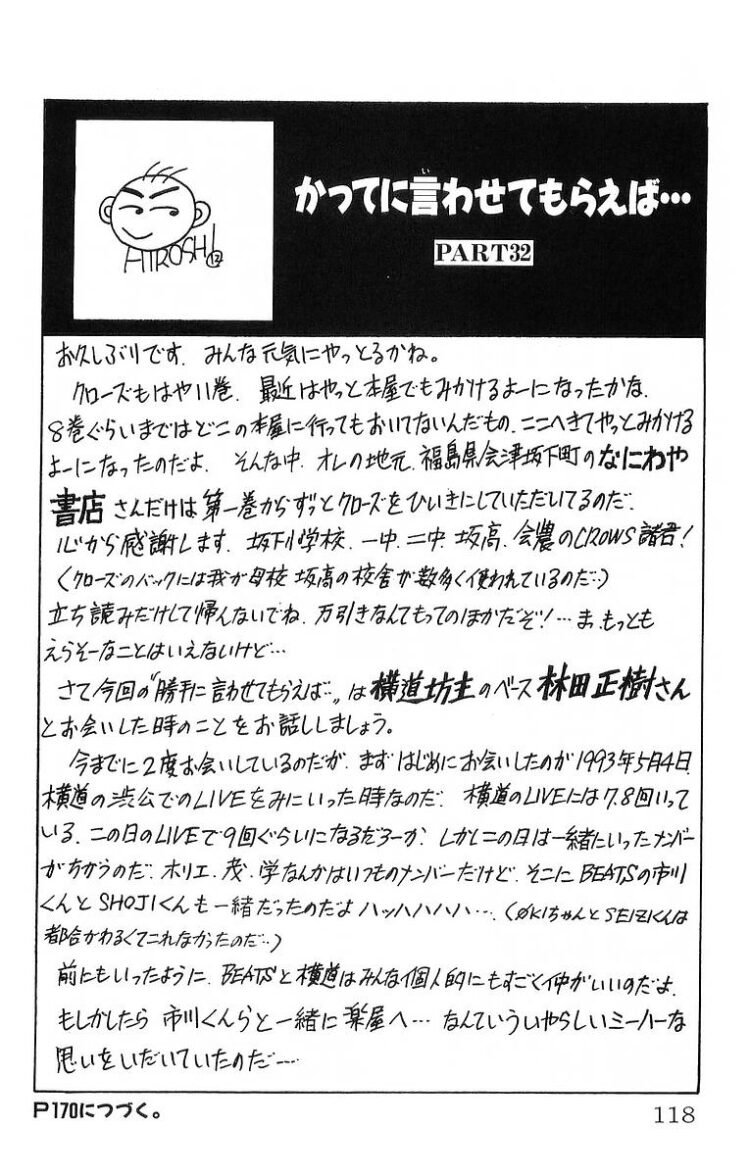 HIROSHI
かってに言わせてもらえば…
PART32
お久しぶりです．みんな元気にやっとるかね。
クローズもはや11巻．最近はやっと本屋でもみかけるよーになったかな．
8巻ぐらいまではどこの本屋に行ってもおいてないんだもの．ここへきてやっとみかける
よーになったのだよ．そんな中．オレの地元．福島県会津坂下町のなにわや
書店さんだけは第一巻からずっとクローズをひいきにしていただいてるのだ．
心から感謝します．坂下小学校．一中．二中．坂高．会農のCROWS諸君！
（クローズのバックには我が母校 坂高の校舎が数多く使われているのだ…）
立ち読みだけして帰んないでね．万引きなんてもってのほかだぞ！…ま．もっとも
えらそーなことはいえないけど…
さて今回の〝勝手に言わせてもらえば…〟は横道坊主のベース林田正樹さん
とお会いした時のことをお話ししましょう。
今までに2度お会いしているのだが．まずはじめにお会いしたのが1993年5月4日．
横道の渋公でのLIVEをみにいった時なのだ．横道のLIVEには7.8回いって
いる．この日のLIVEで9回ぐらいになるだろーか．しかしこの日は一緒にいったメンバー
がちがうのだ．ホリエ．茂．学なんかはいつものメンバーだけど．そこにBEATSの市川
くんとSHOJIくんも一緒だったのだよハッハハハハ…．（ØKIちゃんとSEIZIくんは
都合がわるくてこれなかったのだ…）
前にもいったように．BEATSと横道はみんな個人的にもすごく仲がいいのだよ．
もしかしたら市川くんらと一緒に楽屋へ…なんていういやらしいミーハーな
思いをいだいていたのだ……
P170につづく。
118